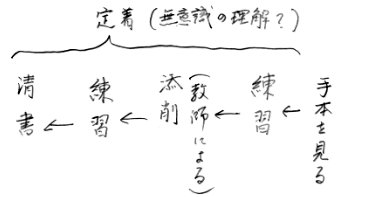 定着(無意識の理解?)
手本を見る
←
練習
←
(教師による)
添削
←
練習
←
清書